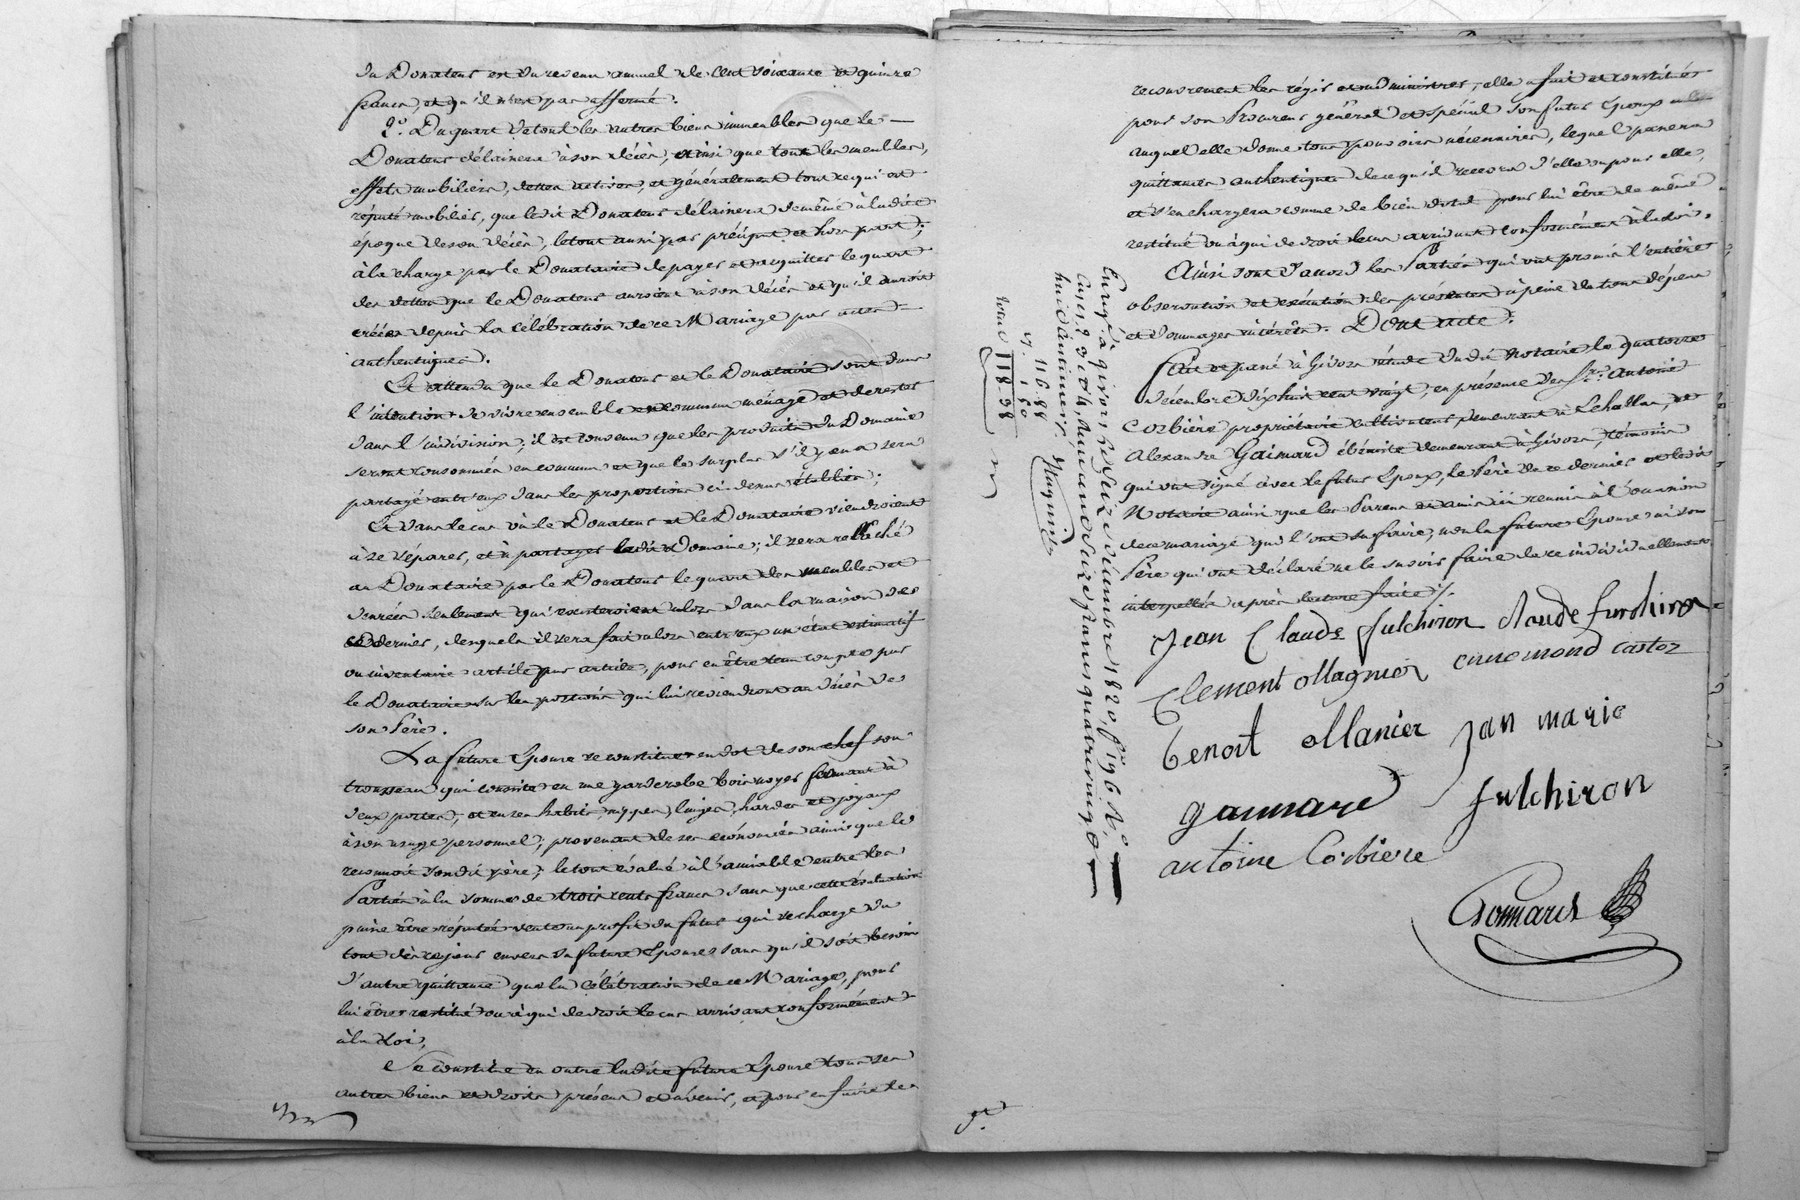 du Donateur est du revenu annuel de cent soixante et quinze
francs, et qu'il n'est pas affermé.
2.º Du quart de tous les autres biens immeubles que le
Donateur délaissera à son décès, ainsi que tous les meubles,
effets mobiliers, dettes actives, et généralement tout ce qui est
réputé mobilier, que ledit Donateur délaissera de même à ladite
époque de son décès, le tout aussi par préciput et hors part;
à la charge par le Donataire de payer et acquitter le quart
des dettes que le Donateur auroit à son décès et qu'il auroit
créées depuis la célébration de ce Mariage par actes
authentiques.
Et attendu que le Donateur et le Donataire sont dans
l'intention de vivre ensemble en commun ménage et de rester
dans l'indivision; il est convenu que les produits du Domaine
seront consommés en commun et que le surplus s'il y en a sera
partagé entr'eux dans les proportions ci-dessus établies;
Et dans le cas où le Donateur et le Donataire viendroient
à se séparer, et à partager ledit Domaine; il sera relâché
au Donataire par le Donateur le quart des meubles et
denrées seulement qui existeroient alors dans la maison de
ce dernier, desquels il sera fait alors entr'eux un état estimatif
ou inventaire article par article, pour en être tenu compte par
le Donataire sur les portions qui lui reviendront au décès de
son Père.
La future Epouse se constitue en dot de son chef son
trousseau qui consiste en une garderobe bois noyer fermant à
deux portes, et en ses habits, nippes, linges, hardes et joyaux
à son usage personnel; provenant de ses économies ainsi que le
reconnoit sondit père; le tout évalué à l'amiable entre les
Parties à la somme de trois cents francs sans que cette évaluation
puisse être réputée vente au profit du futur qui se charge du
tout dès ce jour envers sa future Epouse sans qu'il soit besoin
d'autre quittance que la célébration de ce Mariage, pour
lui être restitué ou à qui de droit le cas arrivant conformément
à la Loi.
Se constitue en outre ladite future Epouse tous ses
autres biens et droits présens et à venir, et pour en faire le
recouvrement les régir et administrer, elle a fait et constitué
pour son Procureur général et spécial son futur Epoux
auquel elle donne tous pouvoirs nécessaires, lequel passera
quittances authentiques de ce qu'il recevra d'elle ou pour elle,
et s'en chargera comme de bien dotal pour lui être de même
restitué ou à qui de droit le cas arrivant conformément à la loi.
Ainsi sont d'accord les Parties qui ont promis l'entière
observation et exécution des présentes à peine de tous dépens
et dommages intérêts. Dont acte.
Fait et passé à Givors étude dudit notaire le quatorze
décembre dix huit cent vingt, en présence des Srs. Antoine
Corbière propriétaire cultivateur demeurant à
Alexandre Gaimard ébéniste demeurant à Givors témoins
qui ont signé avec le futur Epoux, le Père de ce dernier et ledit
Notaire ainsi que les Parens et amis ici reunis à l'occasion
de ce mariage qui l'ont su faire, non la future Epouse ni son
Père qui ont déclaré ne le savoir faire de ce individuellement
interpellés après lecture faite ./.
Jean Claude fulchiron Claude furchiron
Clement Magnier ennemond castoz
benoit Manier jan marie
gaimard fulchiron
antoine Corbiere
Enregé à givors le seize décembre 1820, f° 196 Ro
Cases 2, 3 et 4, Reçu cent seize francs quatre vingt
huit centimes.
116 88
118-98